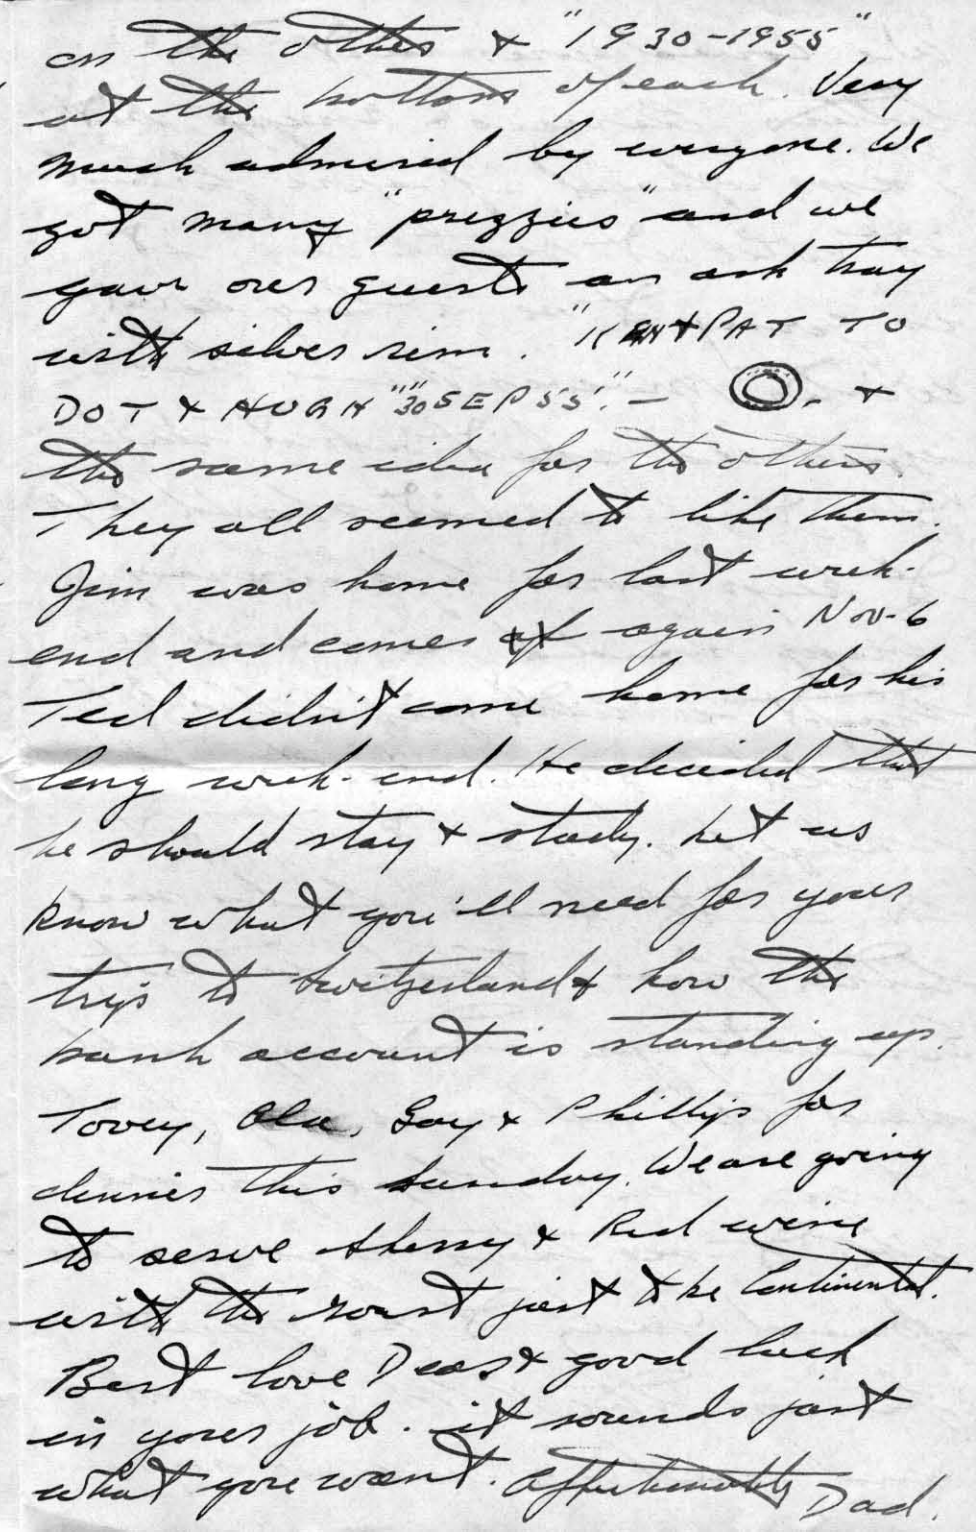 on the other & "1930-1955"
at the bottom of each. Very
much admired by everyone. We
got many "prezzies" and we
gave our guests an ash tray
with silver rim. "KEN & PAT TO
DOT & HUGH "30 SEP 55". - &
the same idea for the others.
They all seemed to like them.
Jim was home for last week-
end and comes again Nov-6
Ted didn't come home for his
long week-end. He decided that
he should stay & study. Let us
know what you'll need for your
trip to Switzerland & how the
bank account is standing up.
Tovey, Ola, Gay & Phillip for
dinner this Sunday. We are going
to serve sherry & Red wine
with the roast just to be Continental.
Best love Dear & good luck
in your job. it sounds just
what you want. Affectionately Dad.